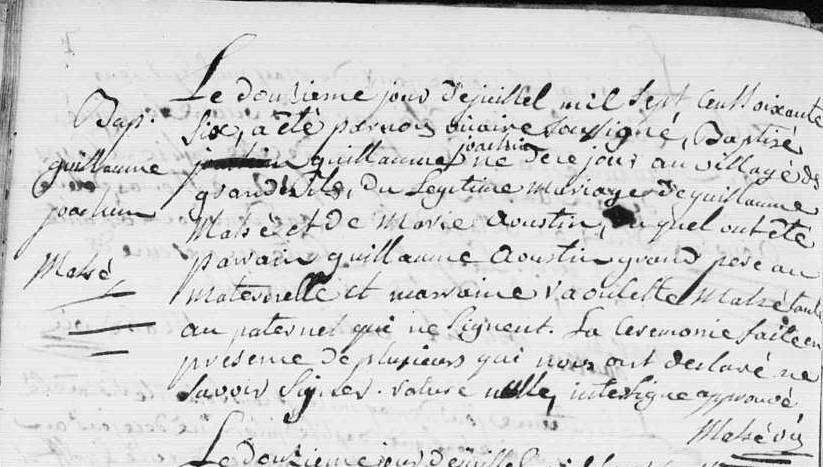 Le douzieme jour de juillet mil sept cent soixante
six, a été par nous vicaire soussigné, Baptisé
guillaume joachim né de ce jour au village de
grand isle, du Legitime mariage de guillaume
Mahé et de Marie Aoustin, auquel ont été
parain guillaume Aoustin grand pere au
maternelle et marraine raoulette Mahé tante
au paternel qui ne signent. La Ceremonie faite en
presence de plusieurs qui nous ont declaré ne
savoir signer. rature nulle, interligne approuvé
Mahé vic
Bap.
guillaume
joachim
Mahé
Le douzieme jour de juillet